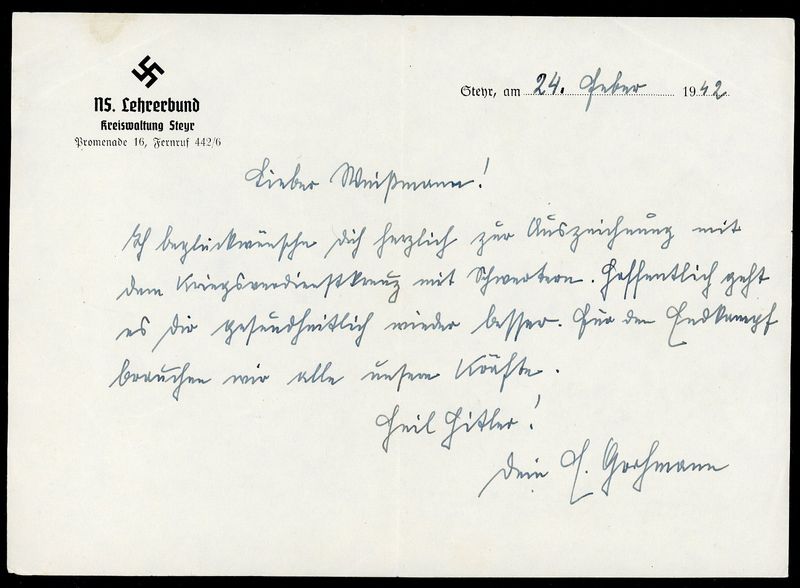 NS. Lehrerbund
Kreiswaltung Steyr
Promenade 16, Fernruf 442/6
Steyr, am 24. Feber 1942
Lieber Weißmann!
Ich beglückwünsche dich herzlich zur Auszeichnung mit
dem Kriegsverdienstkreuz mit Schwertern. Hoffentlich geht
es dir gesundheitlich wieder besser. Für den Endkampf
brauchen wir alle unsere Kräfte.
Heil Hitler!
Dein